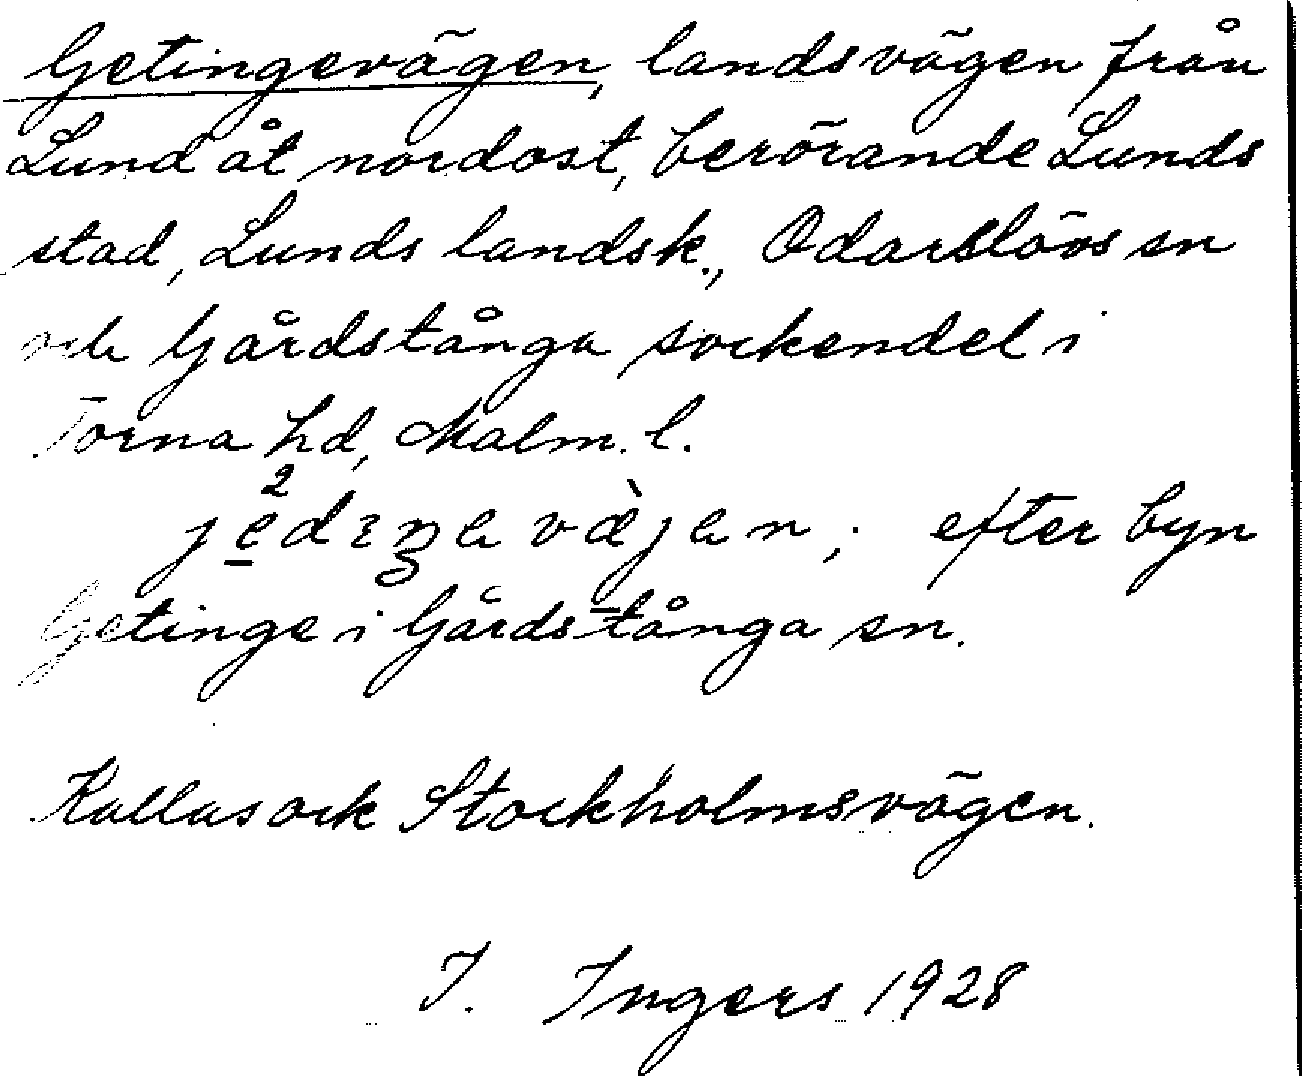 Getingevägen, landsvägen från
Lund åt nordost, berörande Lunds
stad, Lunds landsk., Odarslövs sn
och Gårdstånga sockendel i
Torna hd, Malm. l.
efter byn
Getinge i Gårdstånga sn.
Kallas ock Stockholmsvägen.
I. Ingers 1928